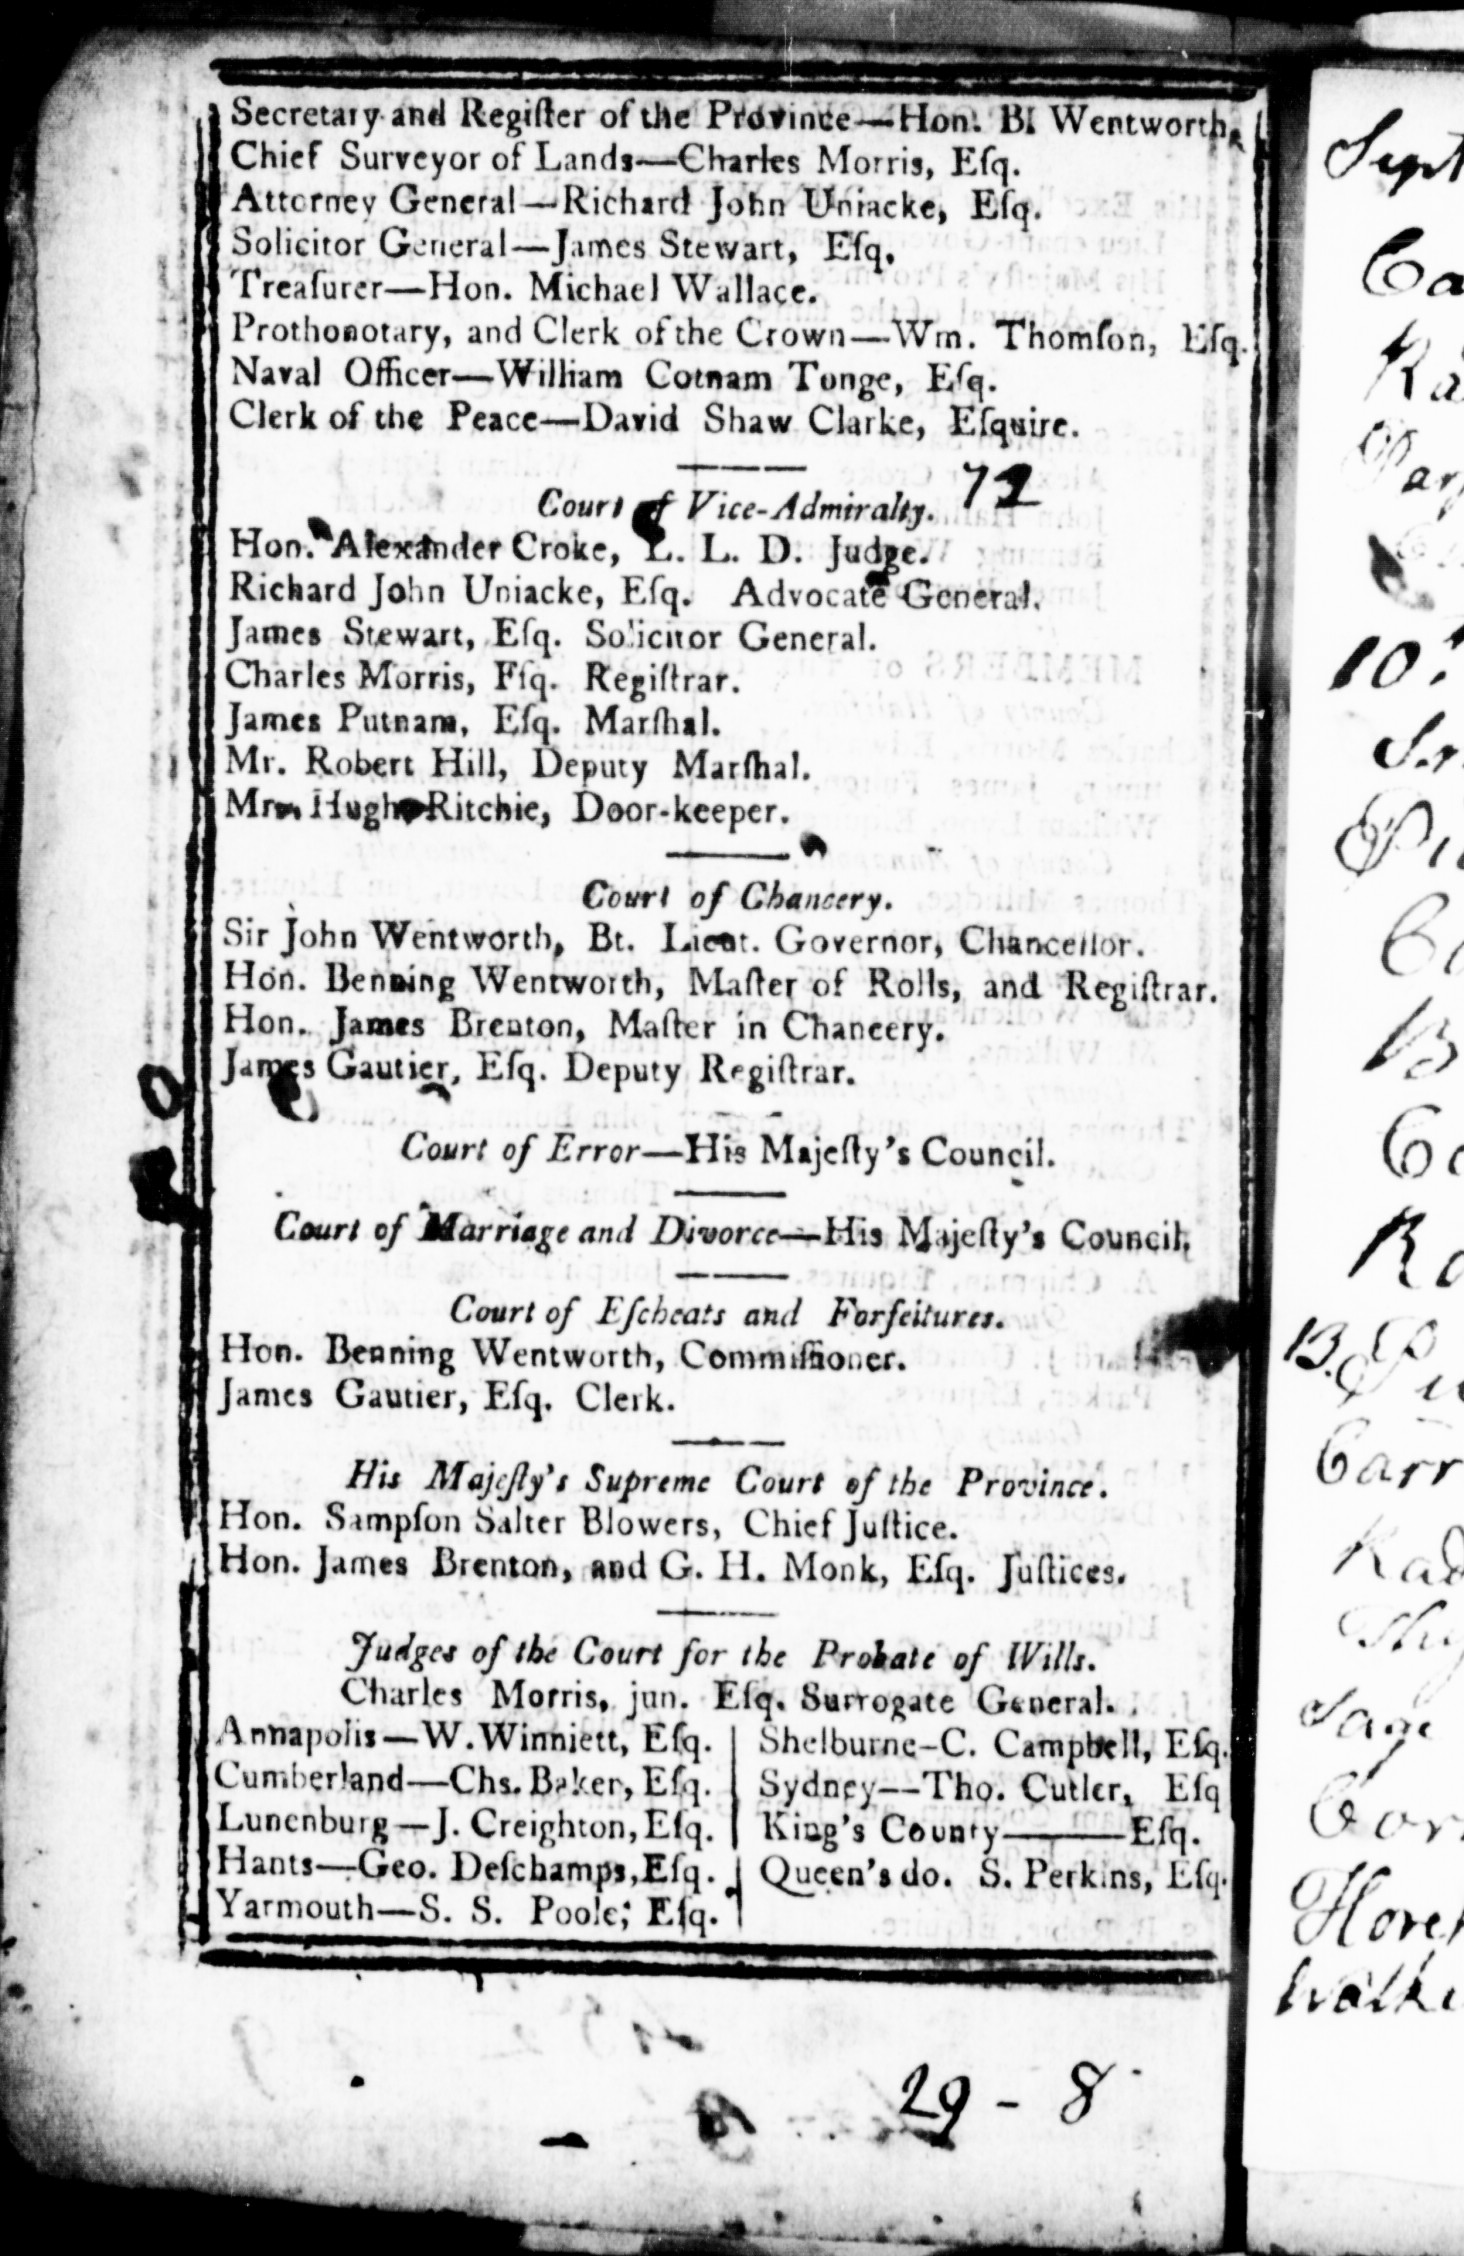 Secretary and Regiſter of the Province—Hon. B. Wentworth.
Chief Surveyor of Lands—Charles Morris, Eſq.
Attorney General—Richard John Uniacke, Eſq.
Solicitor General—James Stewart, Eſq.
Treaſurer—Hon. Michael Wallace.
Prothonotary, and Clerk of the Crown—Wm. Thomſon, Eſq.
Naval Officer—William Cotnam Tonge, Eſq.
Clerk of the Peace—David Shaw Clarke, Eſquire.
72
Court of Vice-Admiralty.
Hon. Alexander Croke, L. L. D. Judge.
Richard John Uniacke, Eſq. Advocate General.
James Stewart, Eſq. Solicitor General.
Charles Morris, Eſq. Regiſtrar.
James Putnam, Eſq. Marſhal.
Mr. Robert Hill, Deputy Marſhal.
Mr. Hugh Ritchie, Door-keeper.
Court of Chancery.
Sir John Wentworth, Bt. Lieut. Governor, Chancellor.
Hon. Benning Wentworth, Maſter of Rolls, and Regiſtrar.
Hon. James Brenton, Maſter in Chancery.
James Gautier, Eſq. Deputy Regiſtrar.
Court of Error—His Majeſty's Council.
Court of Marriage and Divorce—His Majeſty's Council.
Court of Eſcheats and Forfeitures.
Hon. Benning Wentworth, Commiſſioner.
James Gautier, Eſq. Clerk.
His Majeſty's Supreme Court of the Province.
Hon. Sampſon Salter Blowers, Chief Juſtice.
Hon. James Brenton, and G. H. Monk, Eſq. Juſtices.
Judges of the Court for the Probate of Wills.
Charles Morris, jun. Eſq. Surrogate General.
Annapolis—W. Winniett, Eſq.
Cumberland—Chs. Baker, Eſq.
Lunenburg—J. Creighton, Eſq.
Hants—Geo. Deſchamps, Eſq.
Yarmouth—S. S. Poole, Eſq.
Shelburne—C. Campbell, Eſq.
Sydney—Tho. Cutler, Eſq
King's County———Eſq.
Queen's do. S. Perkins, Eſq.
29 - 8
Sept
10
13.